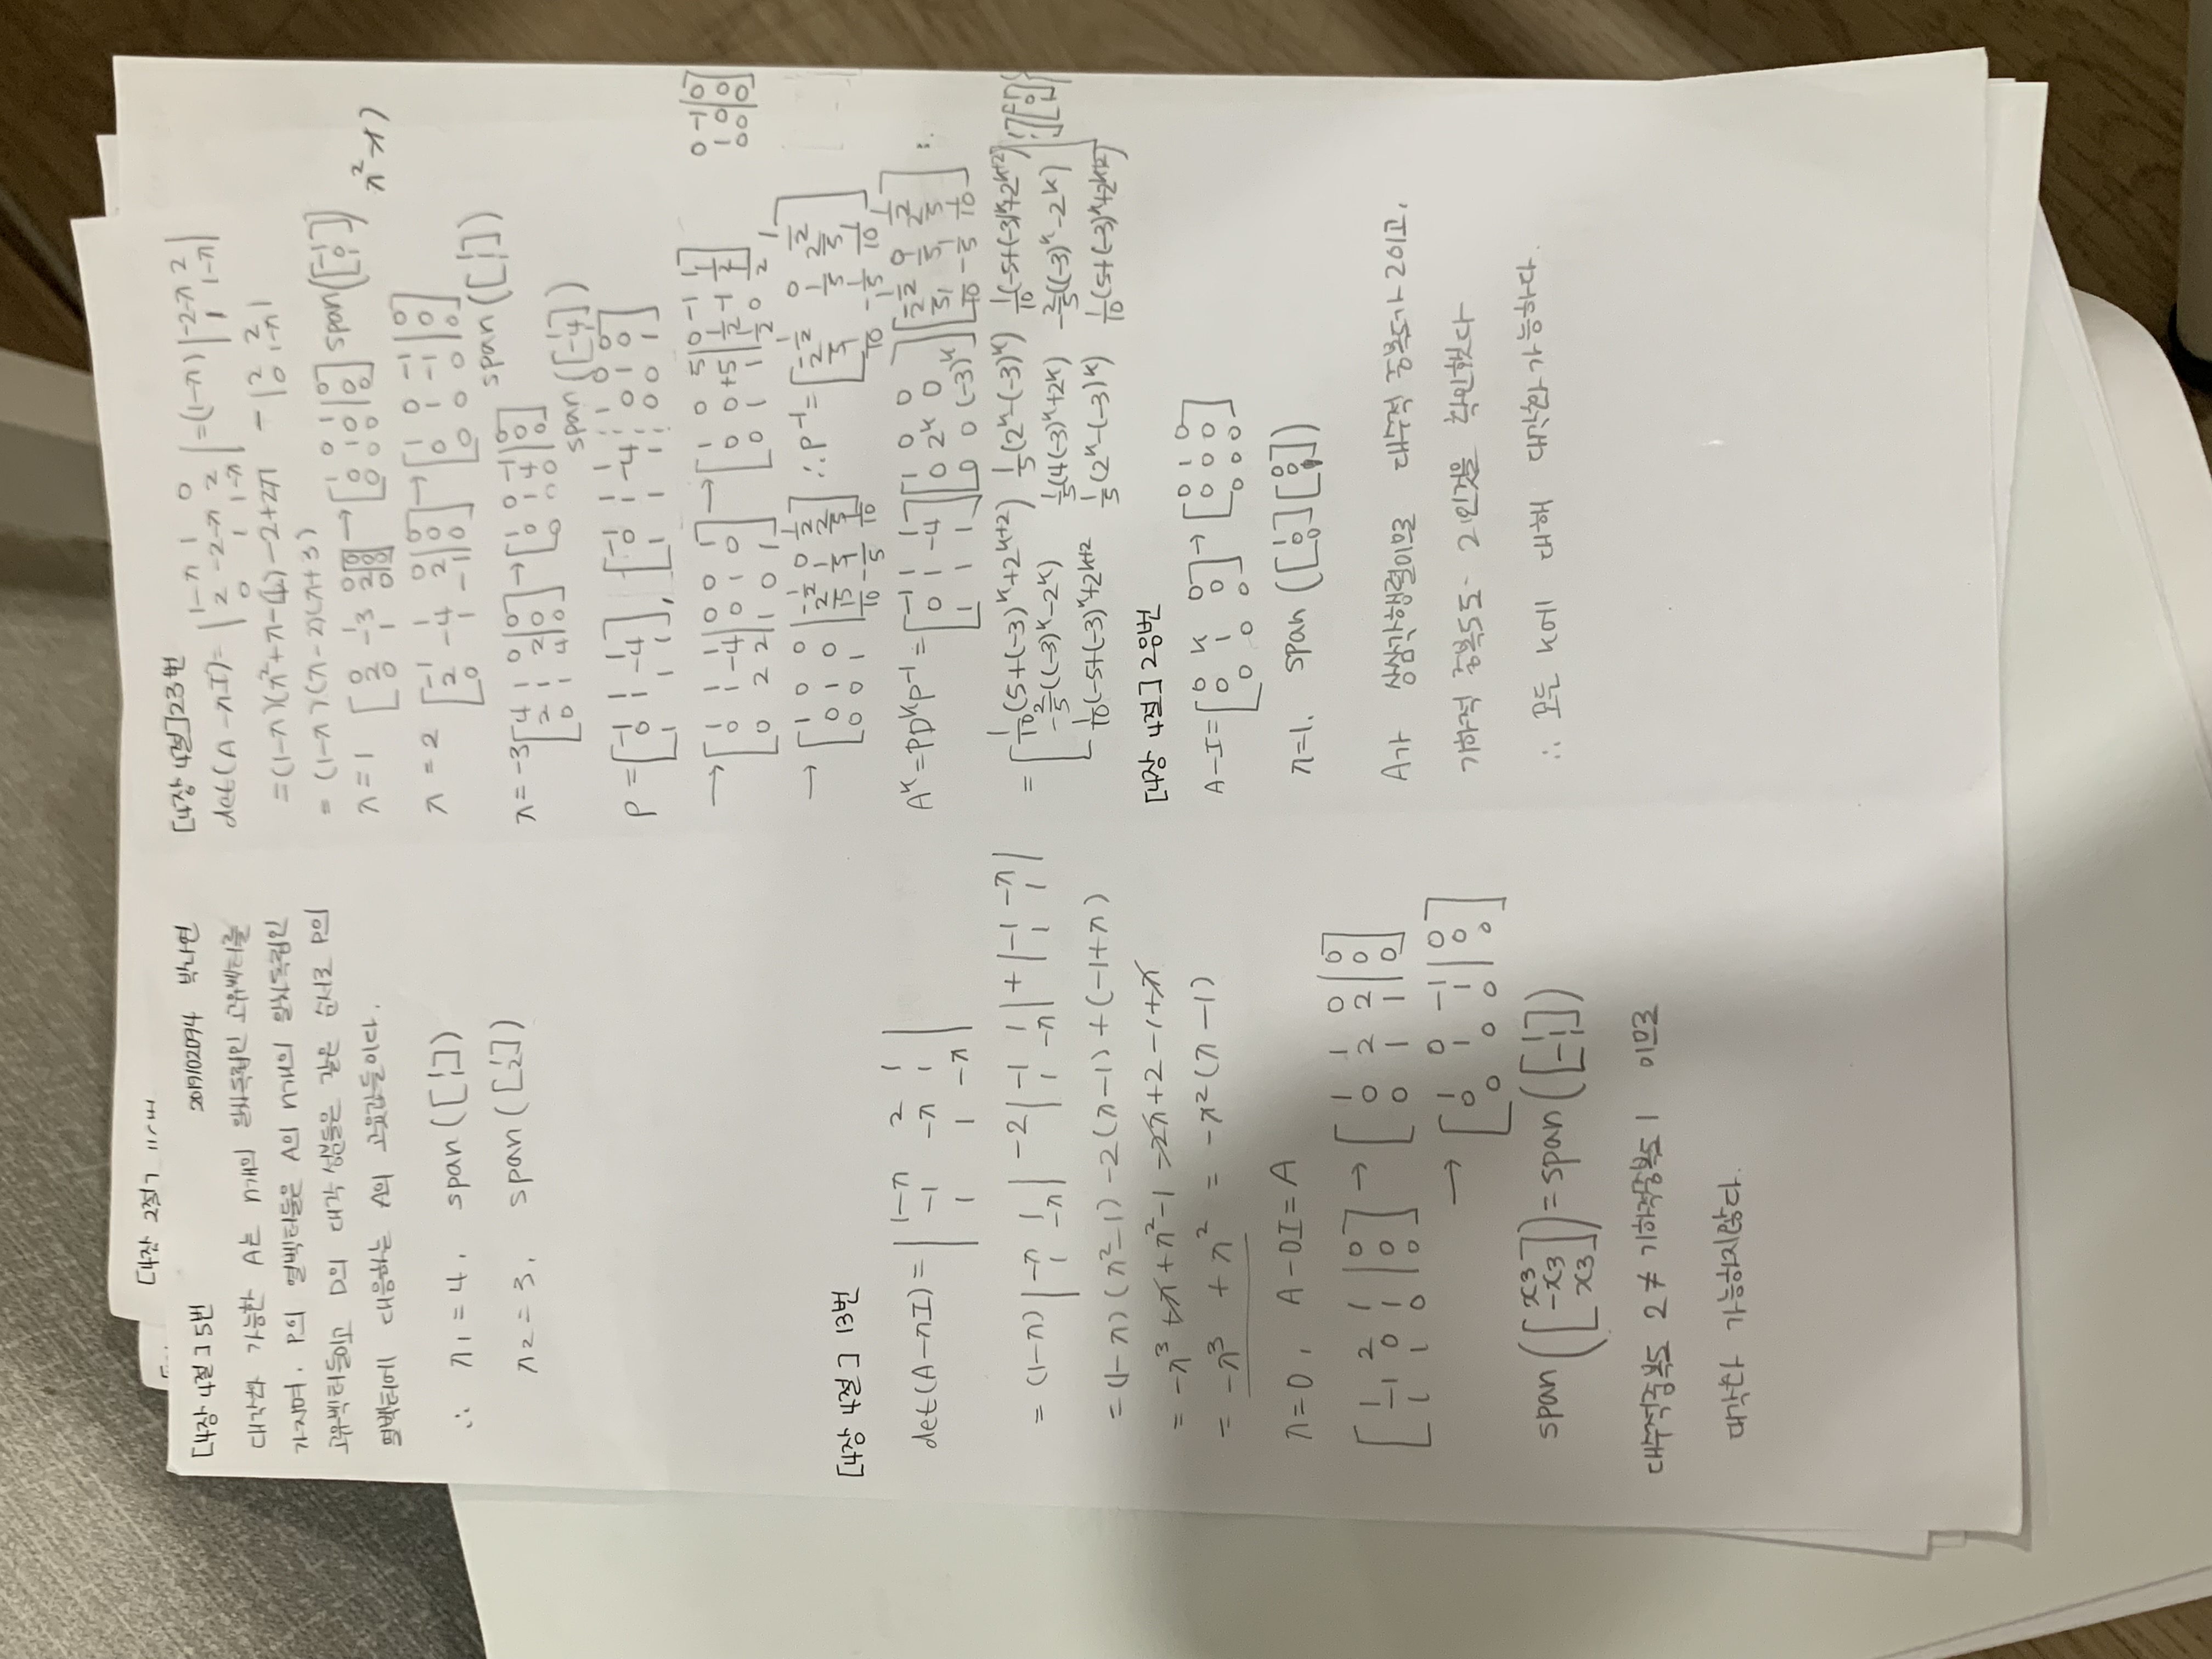 [4장 2절]
[4장 4절] 5번 201902094 박나연
대각화 가능한 A는 n개의 일차독립인 고유벡터를
가지며, P의 열벡터들은 A의 n개의 일차독립인
고유벡터들이고 D의 대각 성분들은 같은 순서로 P의
열벡터에 대응하는 A의 고윳값들이다.
∴ λ1 = 4, span([1 1])
λ2 = 3, span([1 2])
[4장 4절] 13번
det(A-λI) = | 1-λ 2 1 |
| -1 -λ 1 |
| 1 1 -λ |
= (1-λ) | -λ 1 ; 1 -λ | -2 | -1 1 ; 1 -λ | + | -1 -λ ; 1 1 |
= (1-λ)(λ²-1) -2(λ-1) + (-1+λ)
= -λ³ +λ +λ²-1 -2λ+2 -1+λ
= -λ³ + λ² = -λ²(λ-1)
λ=0, A-0I = A
[ 1 2 1 | 0 ] → [ 1 1 0 | 0 ]
[ -1 0 1 | 0 ] [ 0 2 2 | 0 ]
[ 1 1 0 | 0 ] [ 0 1 1 | 0 ]
→ [ 1 0 -1 | 0 ]
[ 0 1 1 | 0 ]
[ 0 0 0 | 0 ]
span([x3 -x3 x3]) = span([1 -1 1])
대수적중복도 2 ≠ 기하적중복도 1 이므로
대각화 가능하지않다.
[4장 4절] 23번
det(A-λI) = | 1-λ 1 0 ; 2 -2-λ 2 ; 0 1 1-λ | = (1-λ) | -2-λ 2 ; 1 1-λ |
= (1-λ)(λ²+λ-4) -2+2λ - | 2 2 ; 0 1-λ |
= (1-λ)(λ-2)(λ+3)
λ = 1 [ 0 1 0 | 0 ; 2 -3 2 | 0 ; 0 1 0 | 0 ] → [ 1 0 1 | 0 ; 0 1 0 | 0 ; 0 0 0 | 0 ] span([-1 0 1])
λ = 2 [ -1 1 0 | 0 ; 2 -4 2 | 0 ; 0 1 -1 | 0 ] → [ 1 0 -1 | 0 ; 0 1 -1 | 0 ; 0 0 0 | 0 ]
span([1 1 1])
λ = -3 [ 4 1 0 | 0 ; 2 1 2 | 0 ; 0 1 4 | 0 ] → [ 1 0 -1 | 0 ; 0 1 4 | 0 ; 0 0 0 | 0 ]
span([1 -4 1])
P = [ -1 1 1 ; 0 1 -4 ; 1 1 1 ], [ -1 1 1 | 1 0 0 ; 0 1 -4 | 0 1 0 ; 1 1 1 | 0 0 1 ]
→ [ 1 1 1 | 0 0 1 ; 0 1 -4 | 0 1 0 ; 0 2 2 | 1 0 1 ] → [ 1 0 5 | 0 -1 1 ; 0 0 +5 | 1/2 -1 1/2 ; 0 1 1 | 1/2 0 1/2 ]
0 -1 | 0
1 0 | 0
0 0 | 0
→ [ 1 0 0 | -1/2 0 1/2 ; 0 1 0 | 2/5 1/5 2/5 ; 0 0 1 | 1/10 -1/5 1/10 ] ∴ P⁻¹ = [ -1/2 0 1/2 ; 2/5 1/5 2/5 ; 1/10 -1/5 1/10 ]
Aᵏ = PDᵏP⁻¹ = [ -1 1 1 ; 0 1 -4 ; 1 1 1 ] [ 1 0 0 ; 0 2ᵏ 0 ; 0 0 (-3)ᵏ ] [ -1/2 0 1/2 ; 2/5 1/5 2/5 ; 1/10 -1/5 1/10 ]
= [ 1/10(5+(-3)ᵏ+2ᵏ⁺²) 1/5(2ᵏ-(-3)ᵏ) 1/10(-5+(-3)ᵏ+2ᵏ⁺²)
-2/5((-3)ᵏ-2ᵏ) 1/5(4(-3)ᵏ+2ᵏ) -2/5((-3)ᵏ-2ᵏ)
1/10(-5+(-3)ᵏ+2ᵏ⁺² 1/5(2ᵏ-(-3)ᵏ) 1/10(5+(-3)ᵏ+2ᵏ⁺²) ]
[4장 4절] 28번
A-I = [ 0 k 0 ; 0 1 0 ; 0 0 0 ] → [ 0 1 0 ; 0 0 0 ; 0 0 0 ]
λ=1, span([1 0 0] [0 0 1])
A가 상삼각행렬이므로 대수적 중복도가 2이고,
기하적 중복도도 2인것을 확인했다
∴ 모든 k에 대해 대각화 가능하다.